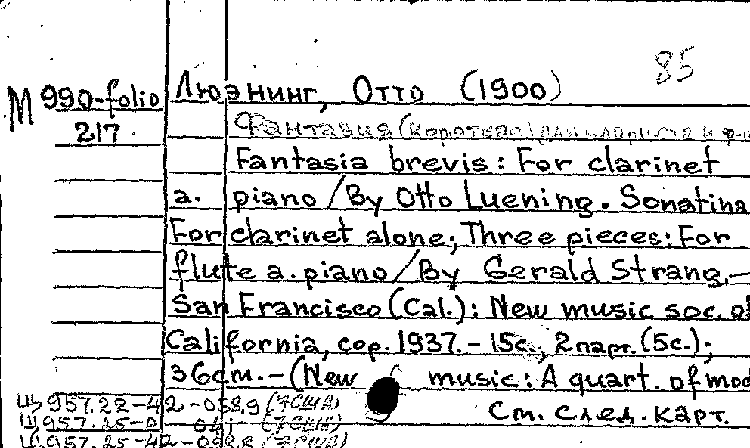 85
М 990-folio Люэнинг, Отто (1900)
217
Фантазия (короткая) для кларнета и ф-п
Fantasia brevis: For clarinet
a. piano / By Otto Luening. Sonatina
For clarinet alone; Three pieces: For
flute a. piano / By Gerald Strang. —
San Francisco (Cal.): New music soc. of
California, cop. 1937. - 15с., 2 парт. (5с.);
36см. - (New music: A quart. of mod
Ш 957.22-42 (7США)
Ш 957.25-2 (7США)
Ш 957.25-42 (7США)
См. след. карт.